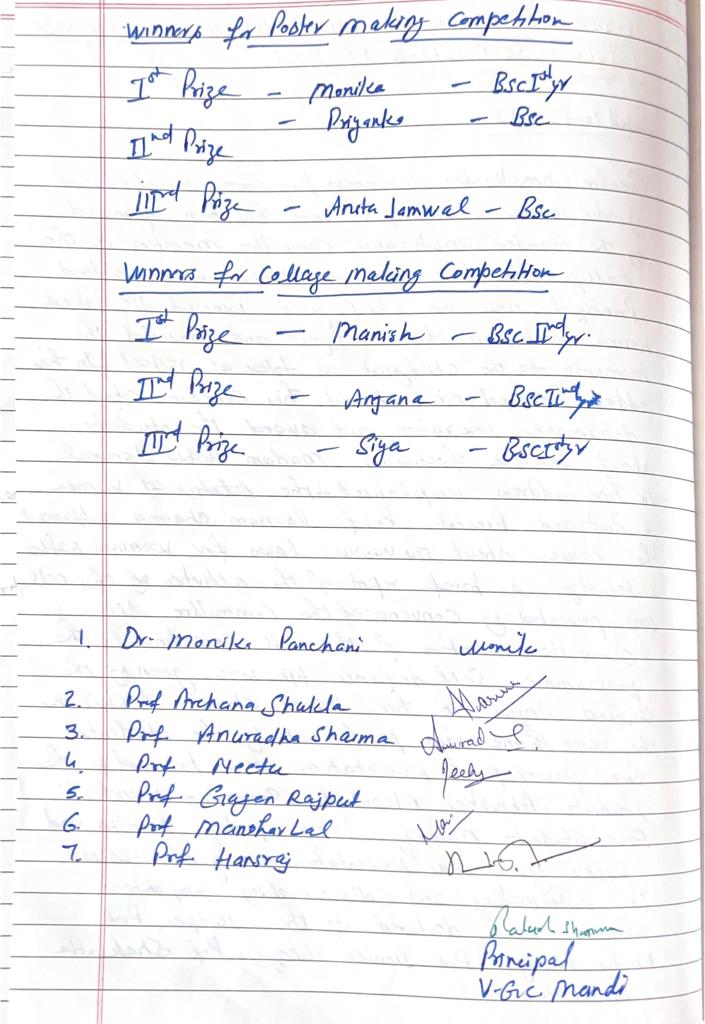 Winners for Poster Making Competition
Ist Prize - Monika - BSc Ist yr
IInd Prize - Priyanka - BSc
IIIrd Prize - Anita Jamwal - BSc
Winners for Collage Making Competition
Ist Prize - Manish - BSc IInd yr.
IInd Prize - Anjana - BSc IInd yr
IIIrd Prize - Siya - BSc Ist yr
1. Dr. Monika Panchani Monik
2. Prof Archana Shukla
3. Prof. Anuradha Sharma
4. Prof Neetu
5. Prof Gagen Rajput
6. Prof Manohar Lal
7. Prof. Hansraj
Principal
V.G.C. Mandi